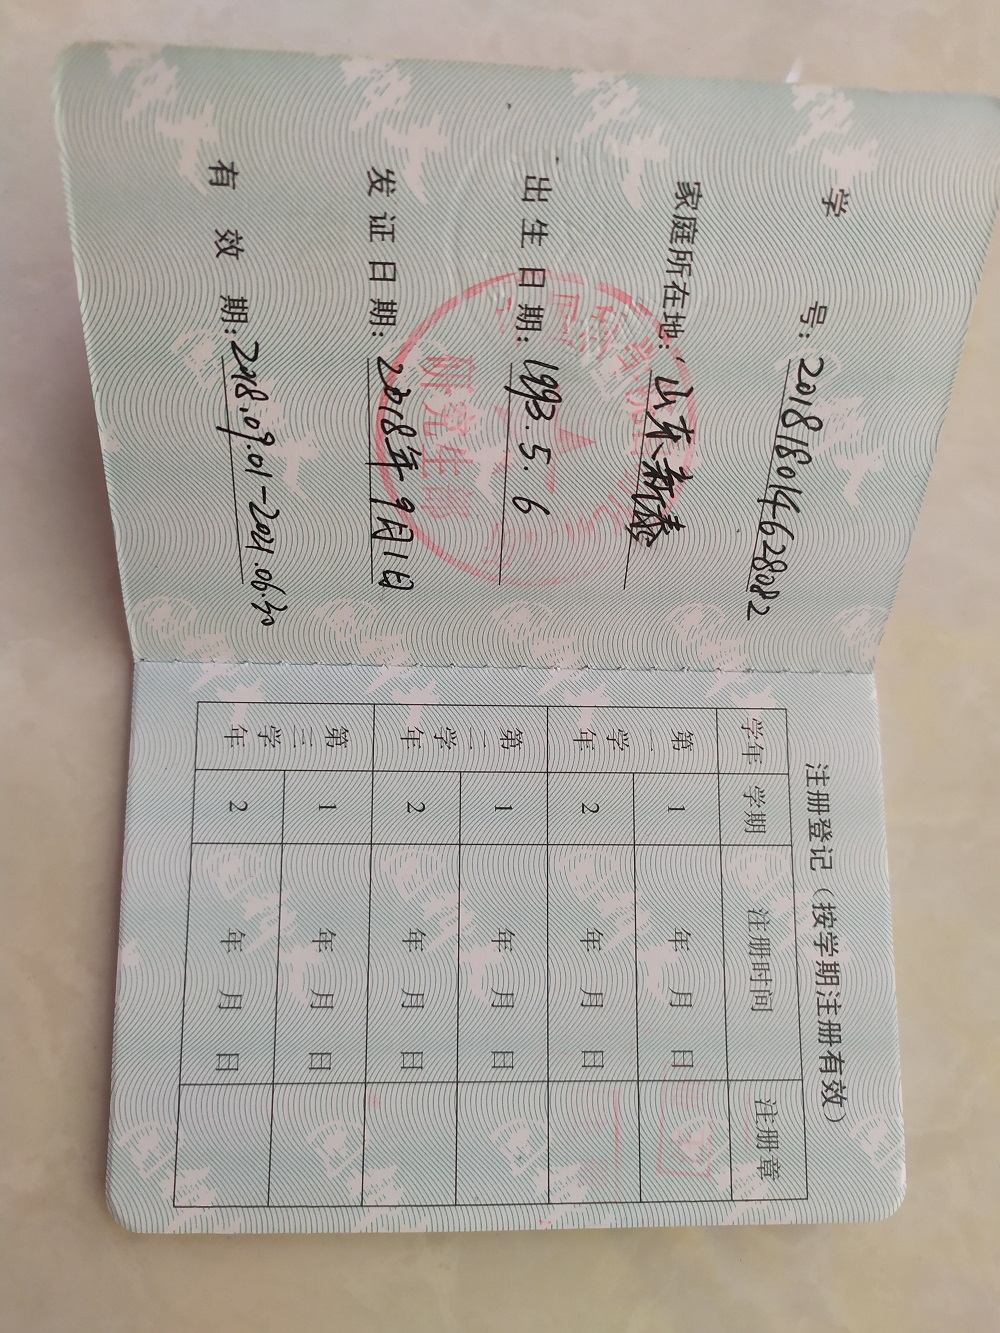 学 号: 201818014628082
家庭所在地: 山东新泰
出生日期: 1993.5.6
发证日期: 2018年9月1日
有效期: 2018.09.01-2021.06.30
研究生部
注册登记（按学期注册有效）
学年 学期 注册时间 注册章
第一学年 1 年 月 日
2 年 月 日
第二学年 1 年 月 日
2 年 月 日
第三学年 1 年 月 日
2 年 月 日